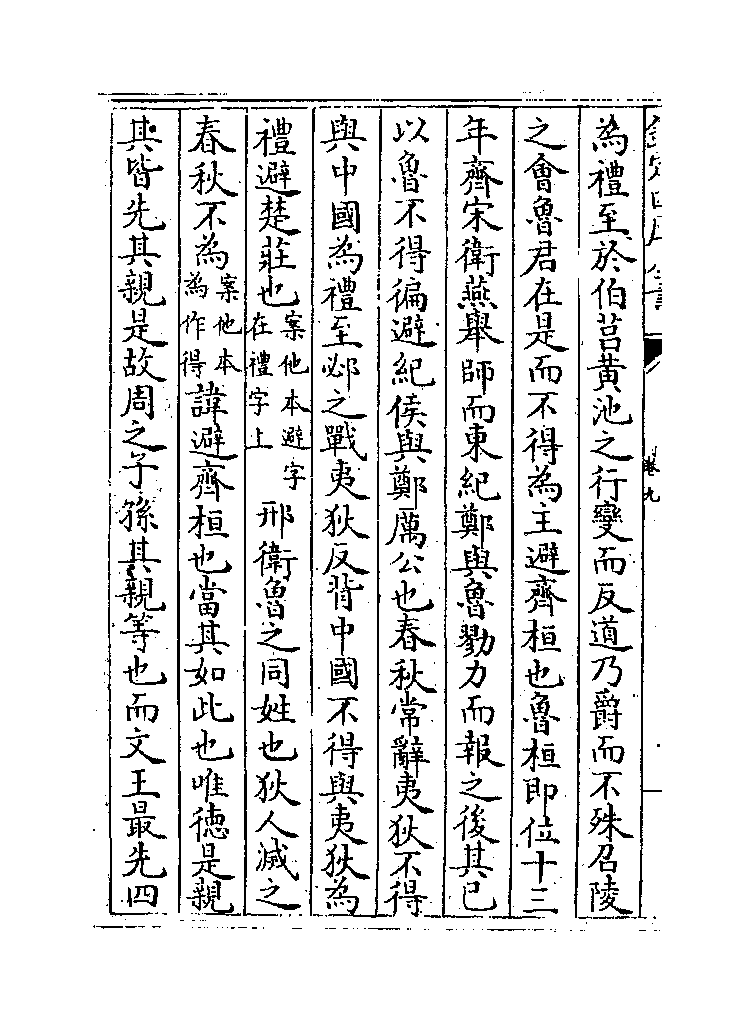 為禮至於伯莒黄池之行變而反道乃爵而不殊召陵
之會魯君在是而不得為主避齊桓也魯桓即位十三
年齊宋衛燕舉師而東紀鄭與魯勠力而報之後其已
以魯不得徧避紀侯與鄭厲公也春秋常辭夷狄不得
與中國為禮至邲之戰夷狄反背中國不得與夷狄為
禮避楚莊也案他本避字在禮字上邢衛魯之同姓也狄人滅之
春秋不為案他本為作得諱避齊桓也當其如此也唯徳是親
其皆先其親是故周之子孫其親等也而文王最先四
卷九